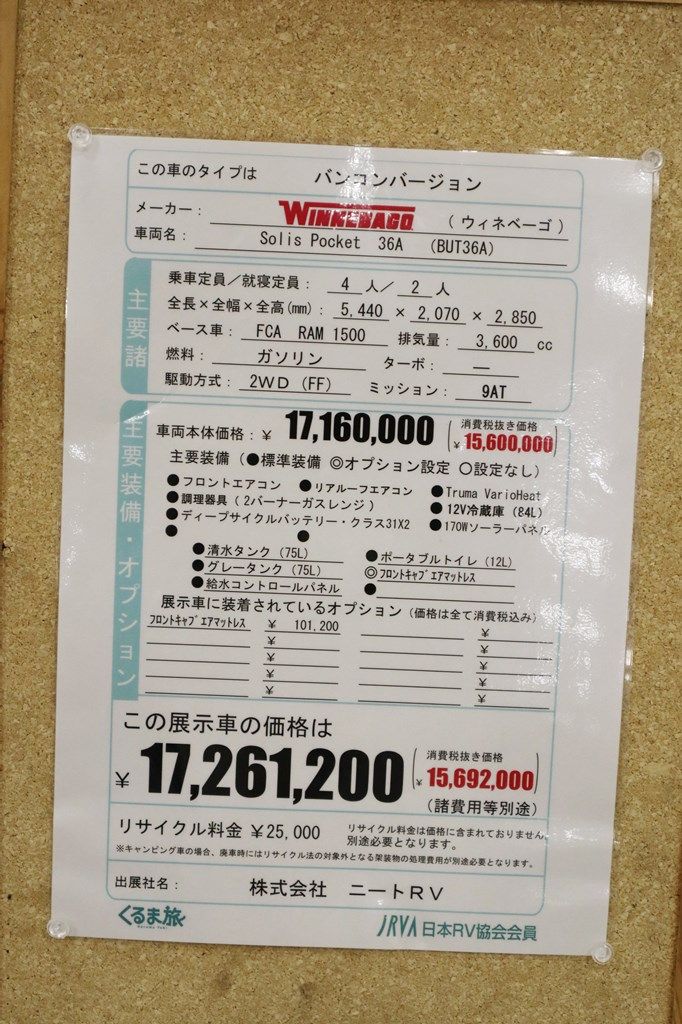 この車のタイプは バンコンバージョン
メーカー： WINNEBAGO （ウィネベーゴ）
車両名： Solis Pocket 36A (BUT36A)
主要諸
乗車定員／就寝定員： 4 人／ 2 人
全長×全幅×全高(mm)： 5,440 × 2,070 × 2,850
ベース車： FCA RAM 1500 排気量： 3,600 cc
燃料： ガソリン ターボ： ―
駆動方式： 2WD (FF) ミッション： 9AT
主要装備・オプション
車両本体価格：￥ 17,160,000 (消費税抜き価格 ￥15,600,000)
主要装備（●標準装備 ◎オプション設定 〇設定なし）
●フロントエアコン ●リアルーフエアコン ●Truma VarioHeat
●調理器具（2バーナーガスレンジ） ●12V冷蔵庫（84L）
●ディープサイクルバッテリー・クラス31X2 ●170Wソーラーパネル
● ●
●清水タンク（75L） ●ポータブルトイレ（12L）
●グレータンク（75L） ◎フロントキャブエアマットレス
●給水コントロールパネル ●
展示車に装着されているオプション（価格は全て消費税込み）
フロントキャブエアマットレス ￥ 101,200 ￥
￥ ￥
￥ ￥
￥ ￥
￥ ￥
この展示車の価格は
￥ 17,261,200 (消費税抜き価格 ￥15,692,000)
（諸費用等別途）
リサイクル料金 ￥25,000 リサイクル料金は価格に含まれておりません。
別途必要となります。
※キャンピング車の場合、廃車時にはリサイクル法の対象外となる架装物の処理費用が別途必要となります。
出展社名： 株式会社 ニートRV
くるま旅 JRVA 日本RV協会会員